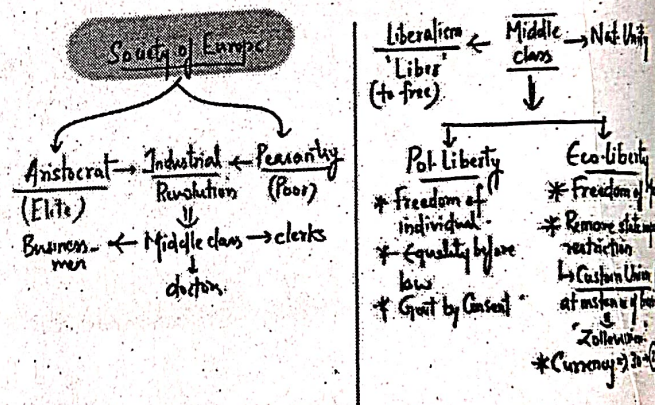 Society of Europe
Aristocrat → Industrial ← Peasantry
(Elite) Revolution (Poor)
Business- ← Middle class → clerks
men
doctors
Liberalism ← Middle → Nat. Unity
'Liber' class
(to free)
Pol. Liberty
* Freedom of
individual.
* Equality before
law
* Govt by Consent
Eco-liberty
* Freedom of
* Remove state
restriction
↳ Custom Union
at instance of
* Currency